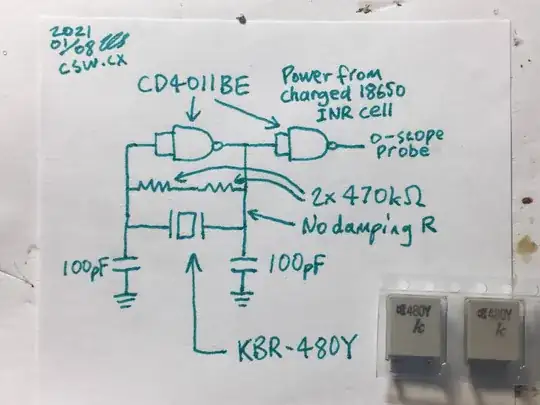 2021
01/08
CSW.CX
CD4011BE
Power from
charged 18650
INR cell
O-scope
Probe
2x 470kΩ
No damping R
100pF
100pF
KBR-480Y
480Y
480Y